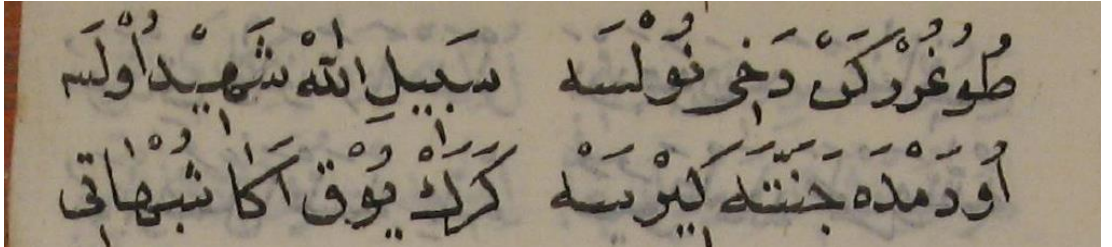 طُوغُرُرْكَنْ دَخِى نُوْلْسَه سَبِيلِ اللّٰهْ شَهِيْدْ اُوْلَسَه
اُودَمْدَه جَنَّتَه كِيرْسَه كَرَكْ يُوْق اَكَا شُبْهَاتِى